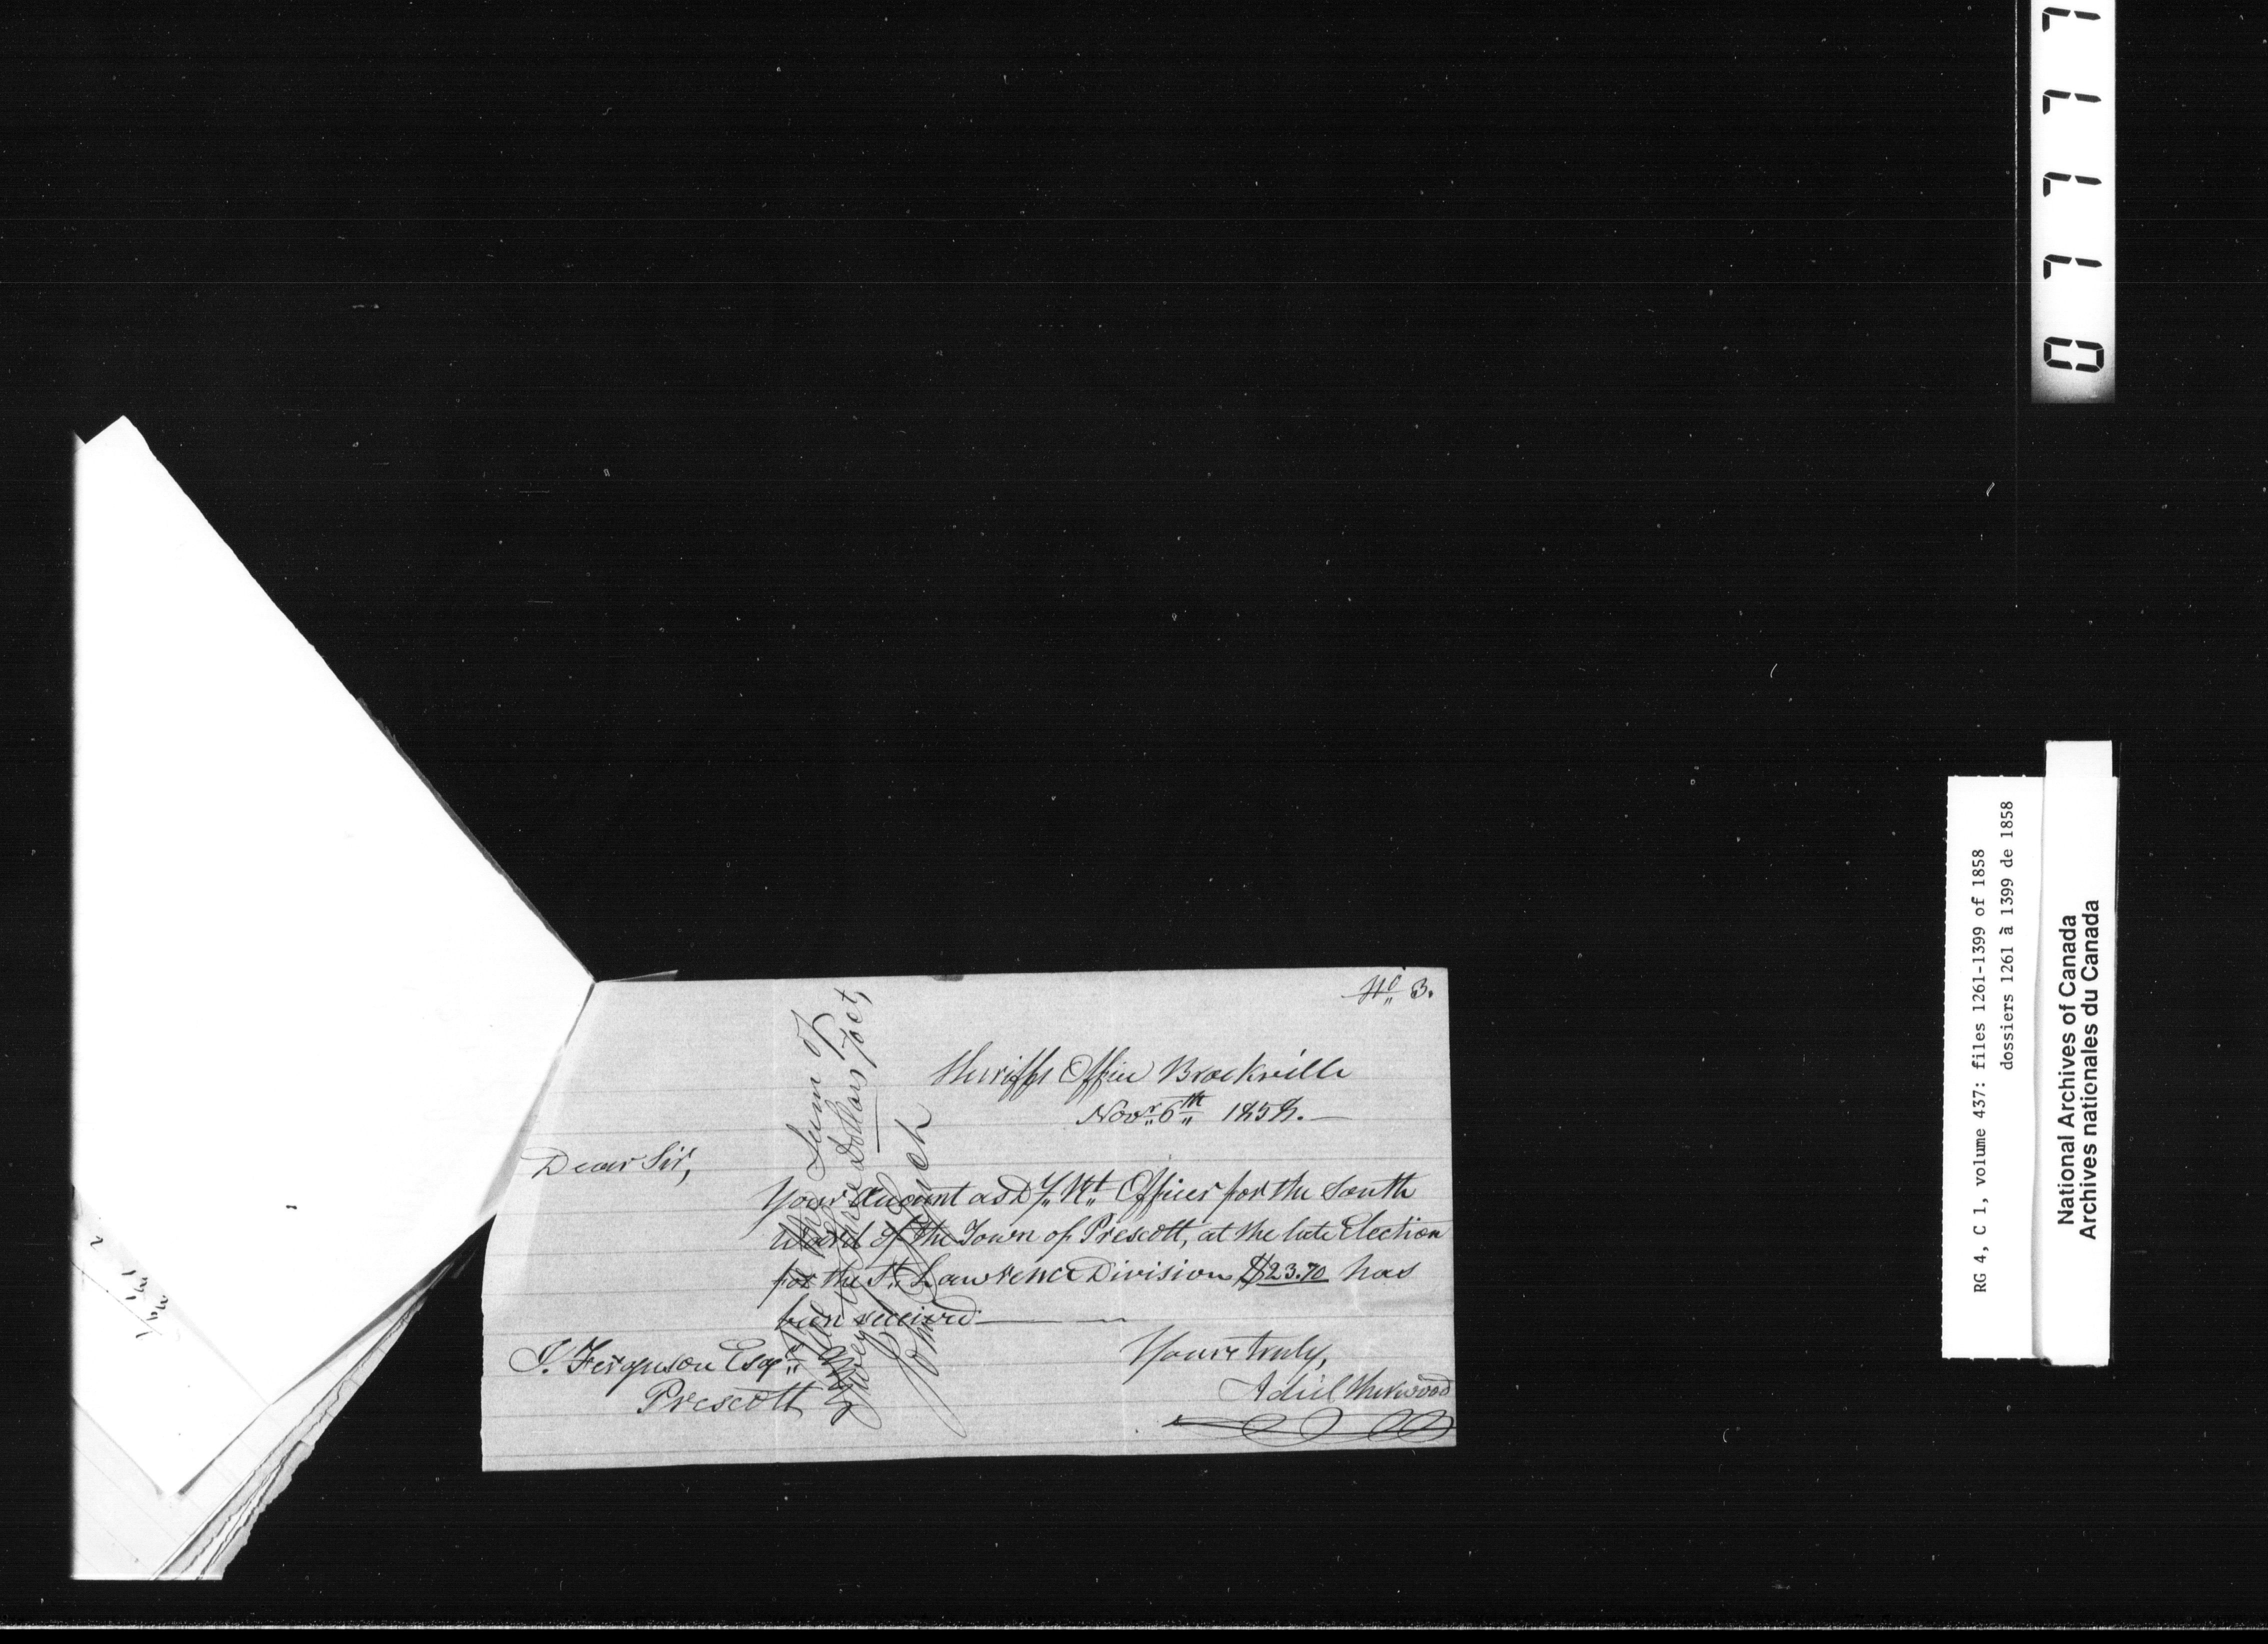 No. 3.
Sheriffs Office Brockville
Novr. 6th 1858.—
Dear Sir,
Your Account as Dy. Rt. Officer for the South
Ward of the Town of Prescott, at the late Election
for the St. Lawrence Division $23.70 has
been received
Yours truly,
Adiel Sherwood
J. Ferguson Esqr.
Prescott
the Sum of
Three Dollars 70 cts,
07777
RG 4, C 1, volume 437: files 1261-1399 of 1858
dossiers 1261 à 1399 de 1858
National Archives of Canada
Archives nationales du Canada